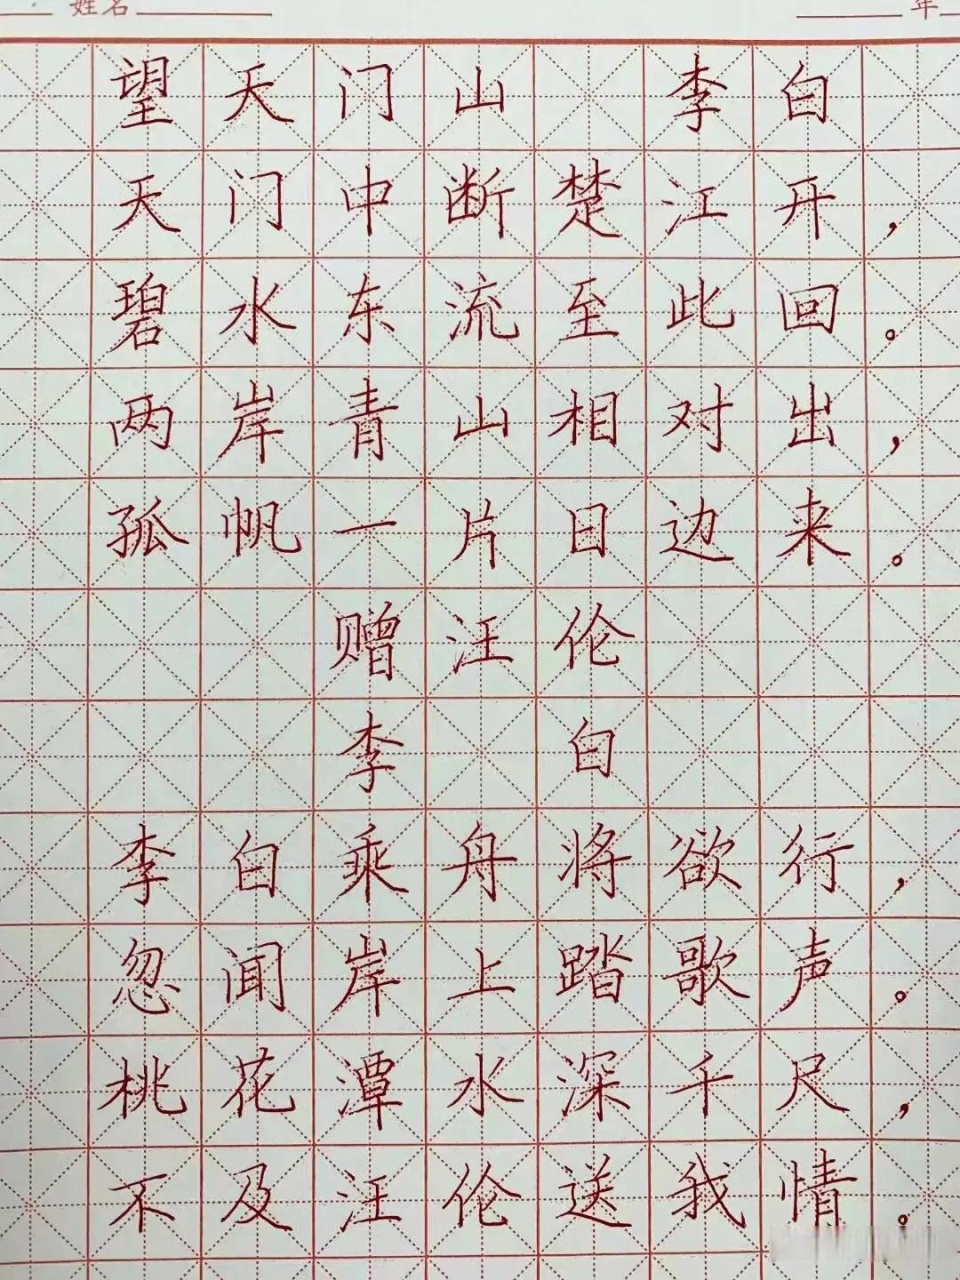 姓名 年
望天门山 李白
天门中断楚江开，
碧水东流至此回。
两岸青山相对出，
孤帆一片日边来。
赠汪伦
李 白
李白乘舟将欲行，
忽闻岸上踏歌声。
桃花潭水深千尺，
不及汪伦送我情。